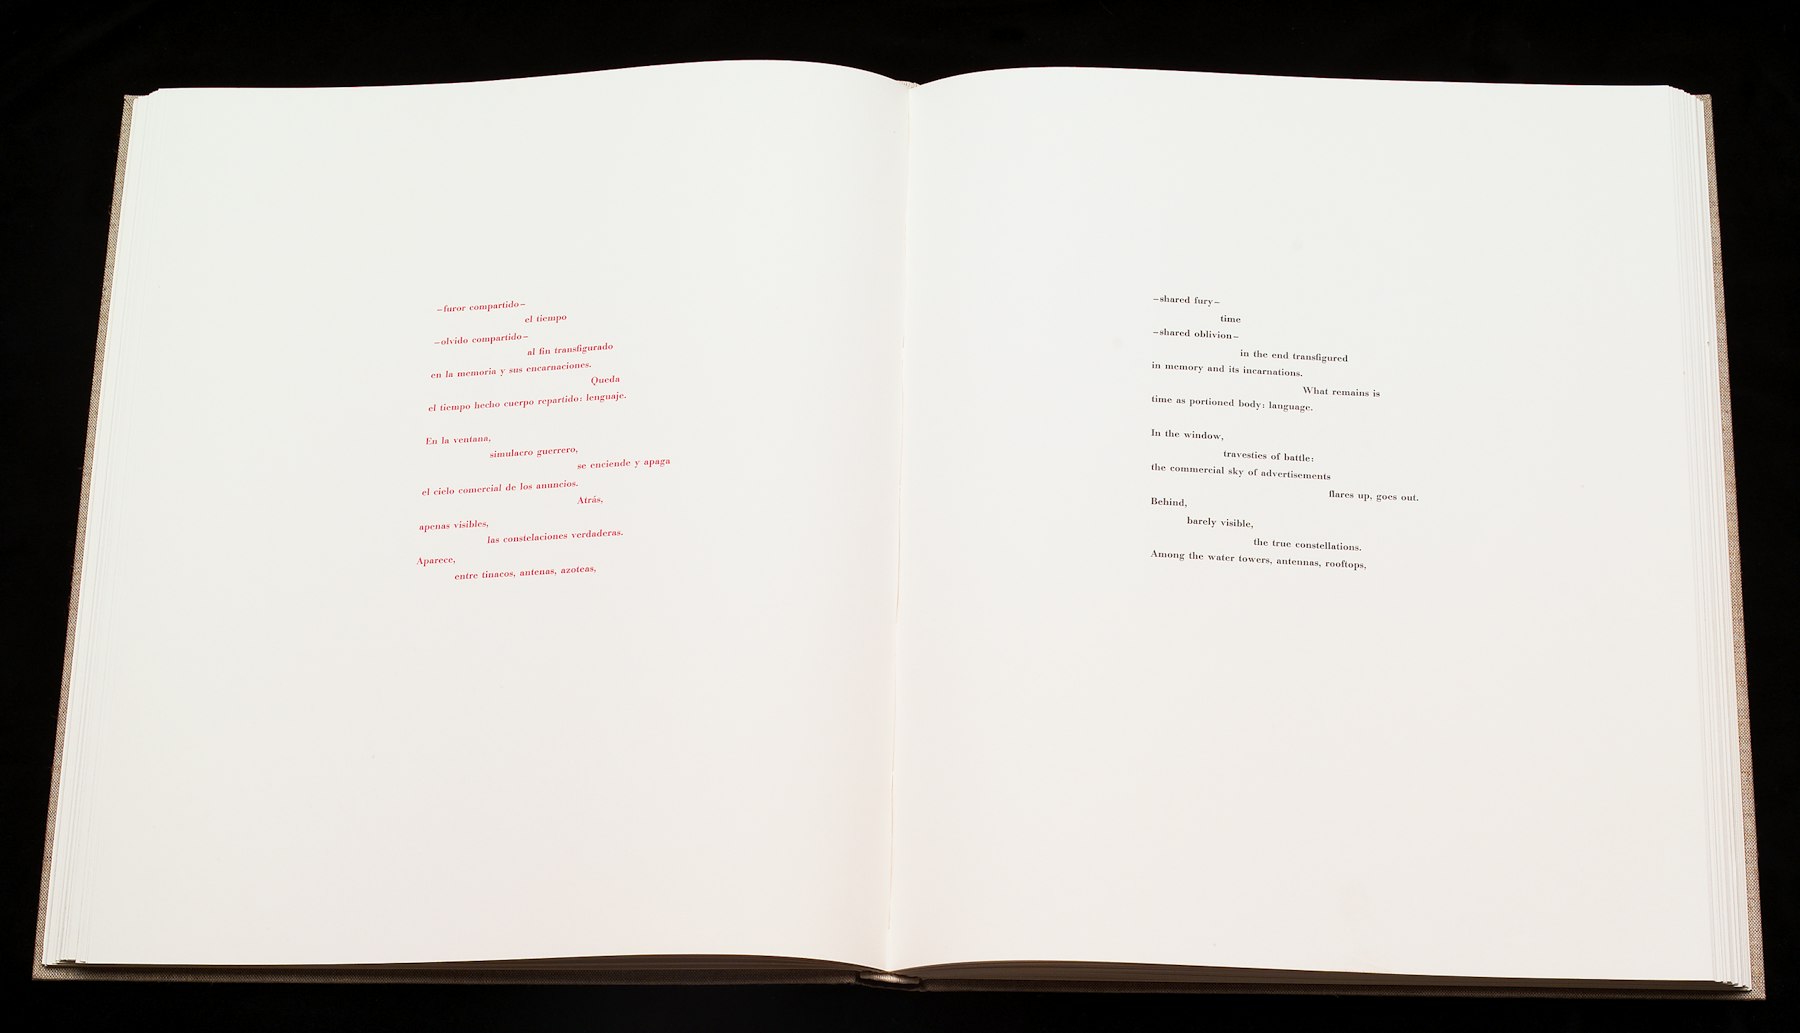 –furor compartido–
el tiempo
–olvido compartido–
al fin transfigurado
en la memoria y sus encarnaciones.
Queda
el tiempo hecho cuerpo repartido: lenguaje.
En la ventana,
simulacro guerrero,
se enciende y apaga
el cielo comercial de los anuncios.
Atrás,
apenas visibles,
las constelaciones verdaderas.
Aparece,
entre tinacos, antenas, azoteas,
–shared fury–
time
–shared oblivion–
in the end transfigured
in memory and its incarnations.
What remains is
time as portioned body: language.
In the window,
travesties of battle:
the commercial sky of advertisements
flares up, goes out.
Behind,
barely visible,
the true constellations.
Among the water towers, antennas, rooftops,